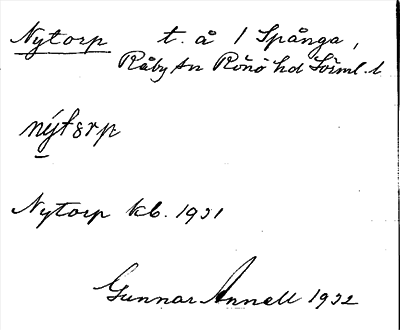 Nytorp t. å 1 Spånga,
Råby sn Rönö hd Sörml. l
nýtorp
Nytorp kb. 1931
Gunnar Annell 1932